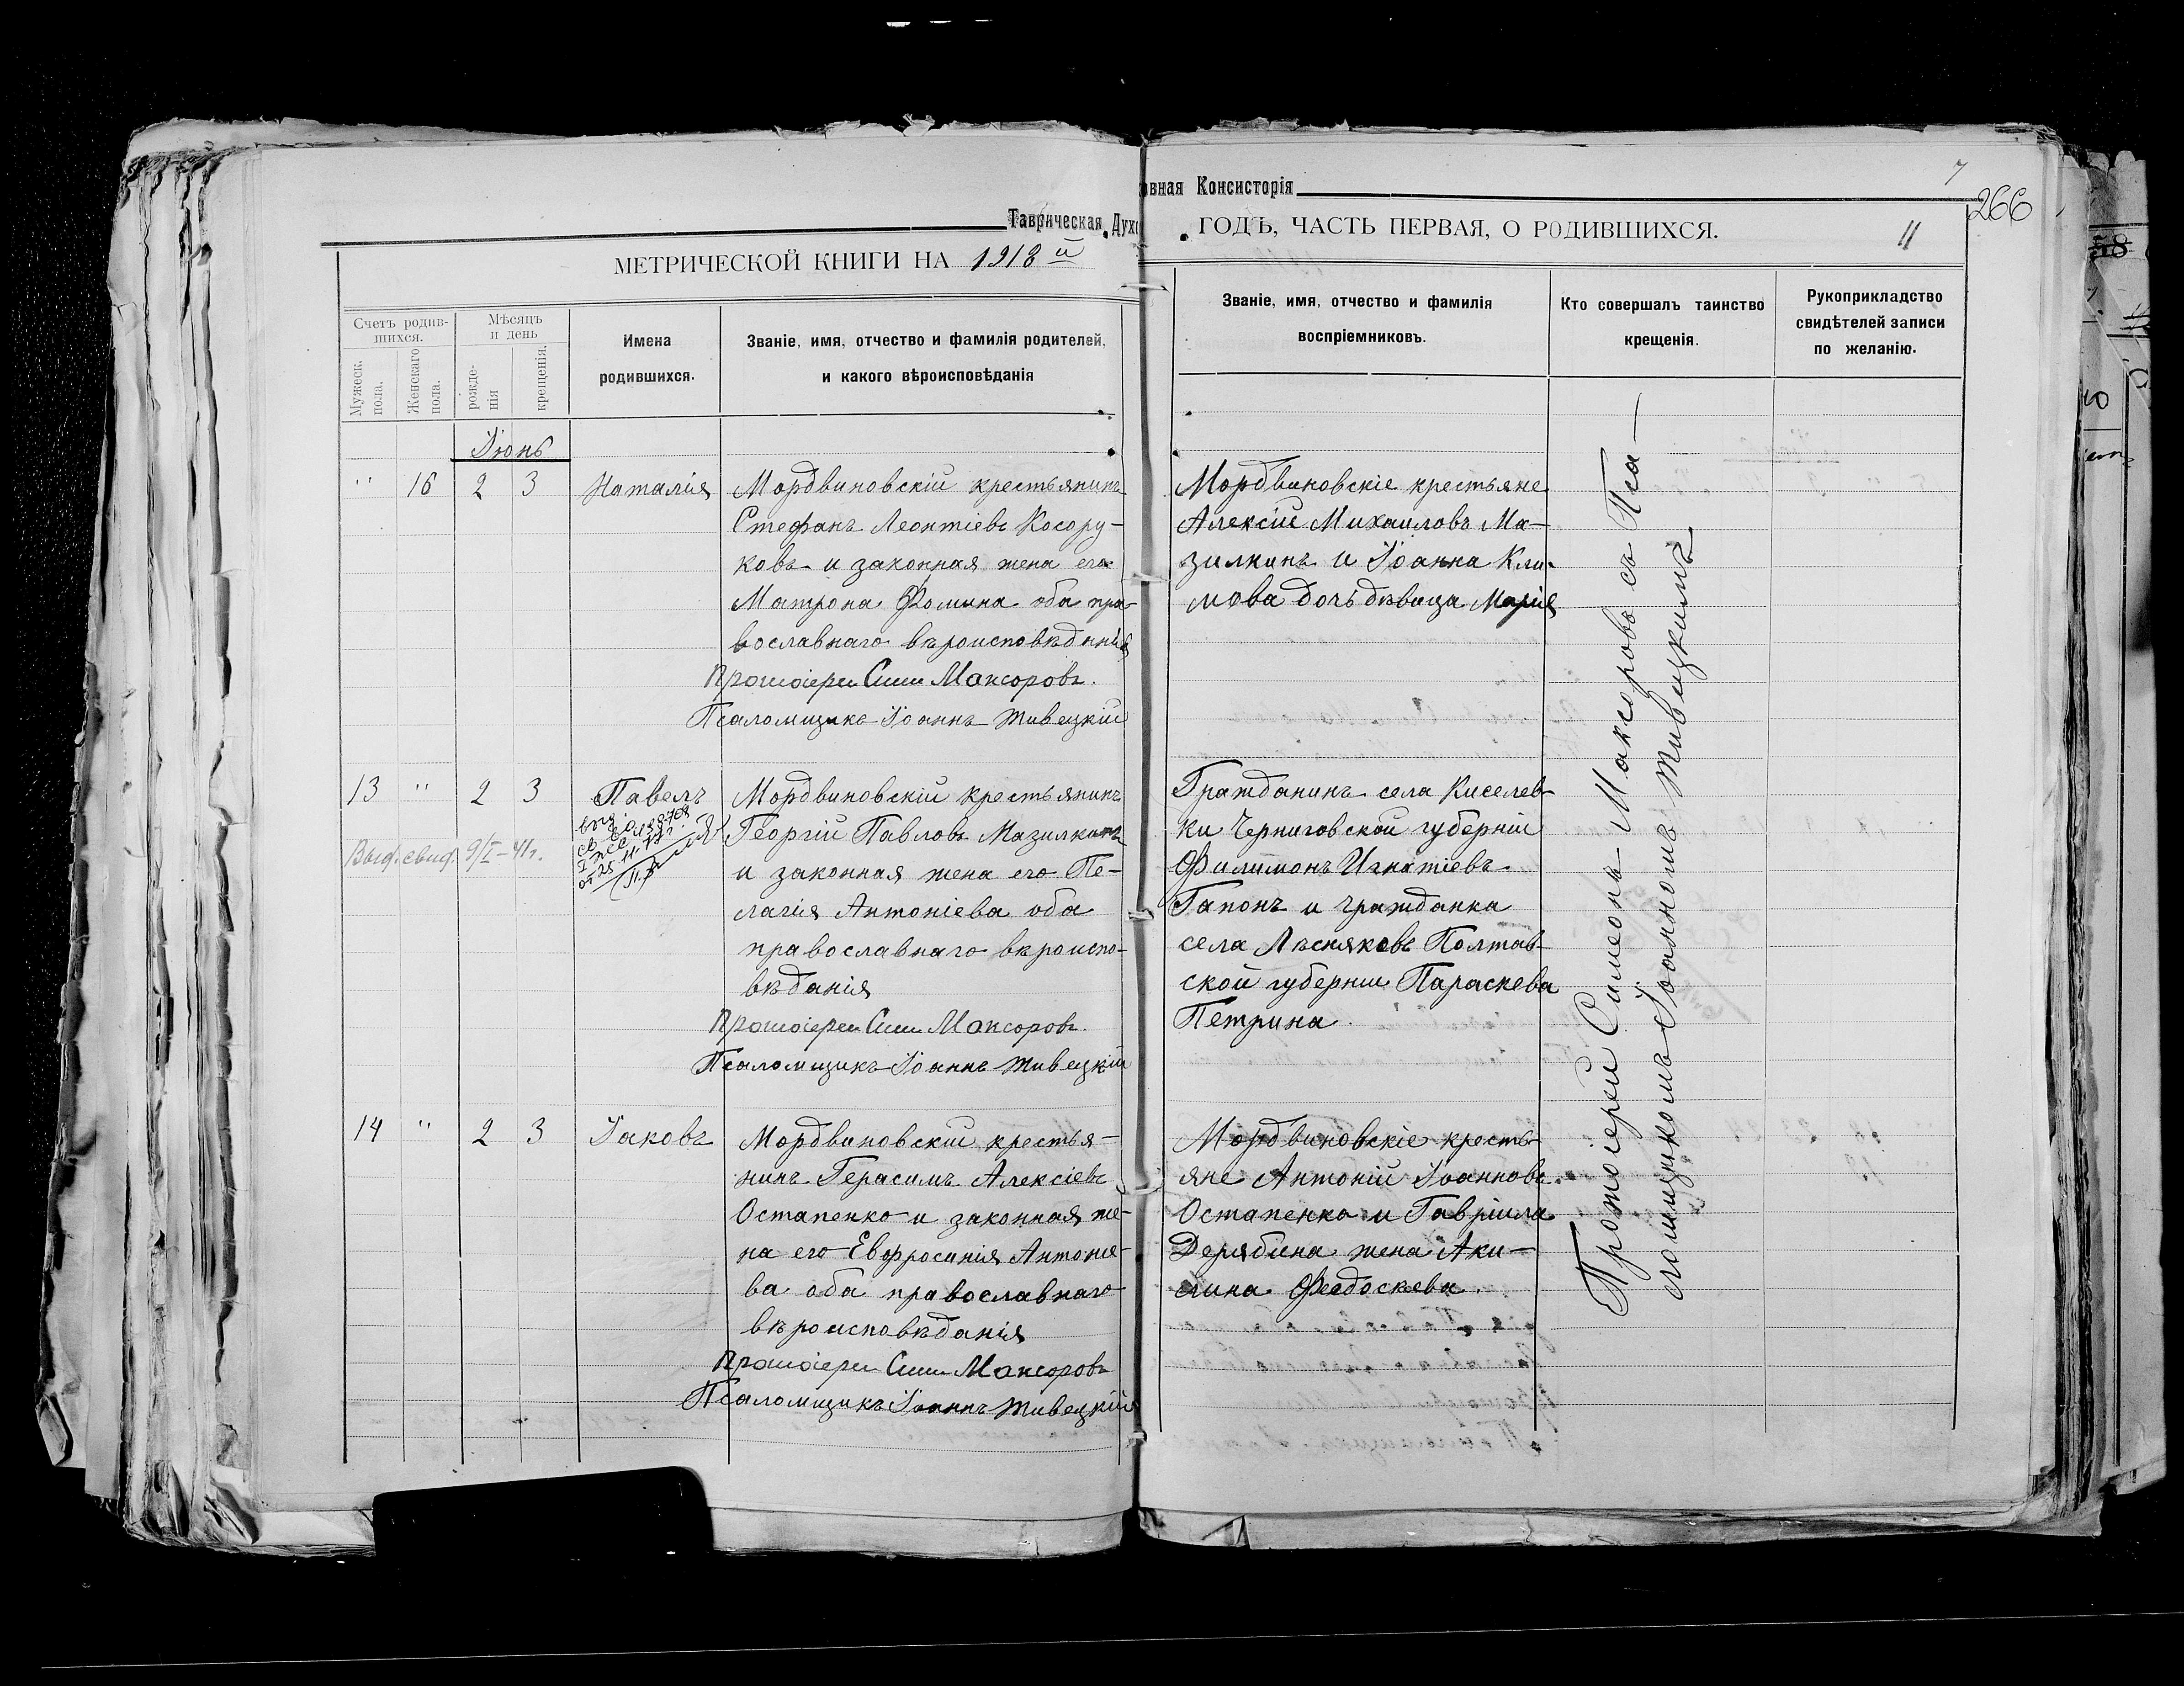 Таврическая Духовная Консисторія
МЕТРИЧЕСКОЙ КНИГИ НА 1918 й ГОДЪ, ЧАСТЬ ПЕРВАЯ, О РОДИВШИХСЯ.
7
11
266
Счетъ родив-
шихся.
Мужеск. пола.
Женскаго пола.
Мѣсяцъ
и день
рожде-
нія
крещенія.
Имена
родившихся.
Званіе, имя, отчество и фамилія родителей,
и какого вѣроисповѣданія
Званіе, имя, отчество и фамилія
воспріемниковъ.
Кто совершалъ таинство
крещенія.
Рукоприкладство
свидѣтелей записи
по желанію.
Іюнь
" 16 2 3 Наталія
Мордвиновскій крестьянинъ
Стефанъ Леонтіевъ Косору-
ковъ и законная жена его
Матрона Фомина оба пра-
вославнаго вѣроисповѣданія
Протоіерей Сим Максоровъ.
Псаломщикъ Іоаннъ Живецкій
Мордвиновскіе крестьяне
Алексій Михаиловъ Ма-
зилкинъ и Іоанна Кли-
мова дочь дѣвица Марія
13 " 2 3 Павелъ
Выд. свид. 9/I-41г.
Мордвиновскій крестьянинъ
Георгій Павловъ Мазилкинъ
и законная жена его Пе-
лагія Антоніева оба
православнаго вѣроиспо-
вѣданія
Протоіерей Сим Максоровъ.
Псаломщикъ Іоаннъ Живецкій
Гражданинъ села Киселев-
ки Черниговской губерніи
Филимонъ Игнатіевъ
Гапонъ и гражданка
села Лѣсняковъ Полтав-
ской губерніи Параскева
Петрина.
14 " 2 3 Іаковъ
Мордвиновскій крестья-
нинъ Герасимъ Алексіевъ
Остапенко и законная же-
на его Евфросинія Антоніе-
ва оба православнаго
вѣроисповѣданія
Протоіерей Сим Максоровъ
Псаломщикъ Іоаннъ Живецкій
Мордвиновскіе кресть-
яне Антоній Іоанновъ
Остапенко и Гавріила
Дерябина жена Аки-
лина Феодосіева.
Протоіерей Симеонъ Максоровъ съ Пса-
ломщикомъ Іоанномъ Живецкимъ